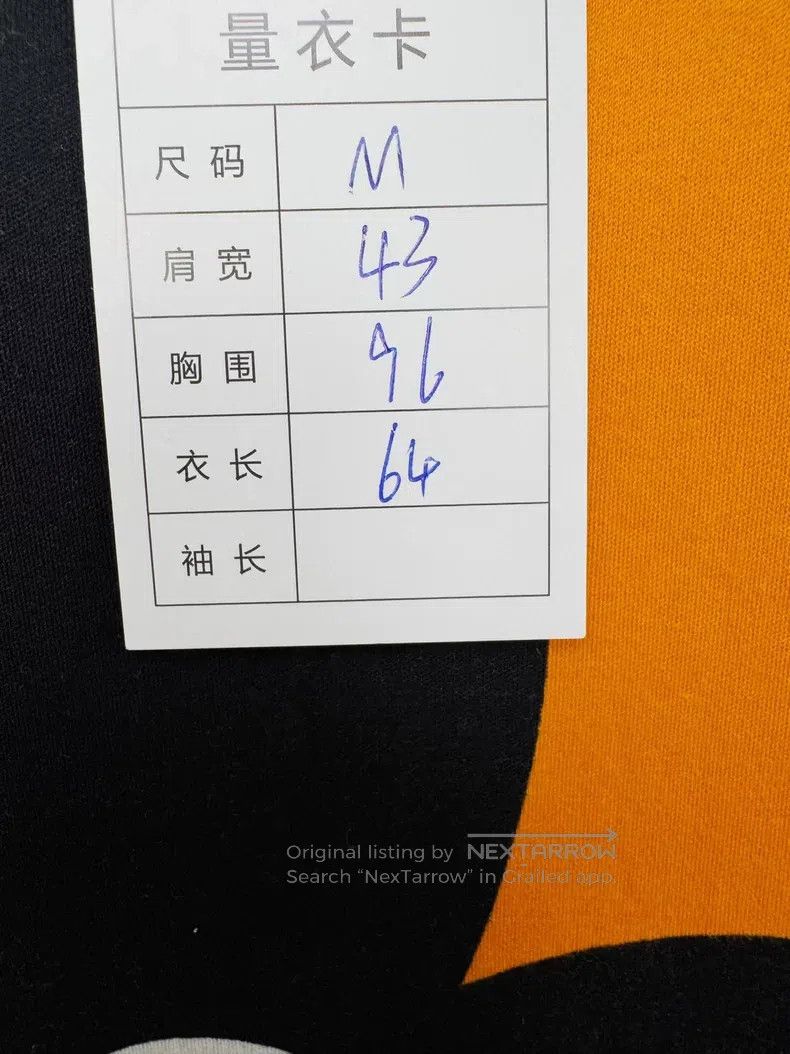 量衣卡
尺码 M
肩宽 43
胸围 96
衣长 64
袖长
Original listing by NEXTARROW
Search “NexTarrow” in Grailed app.